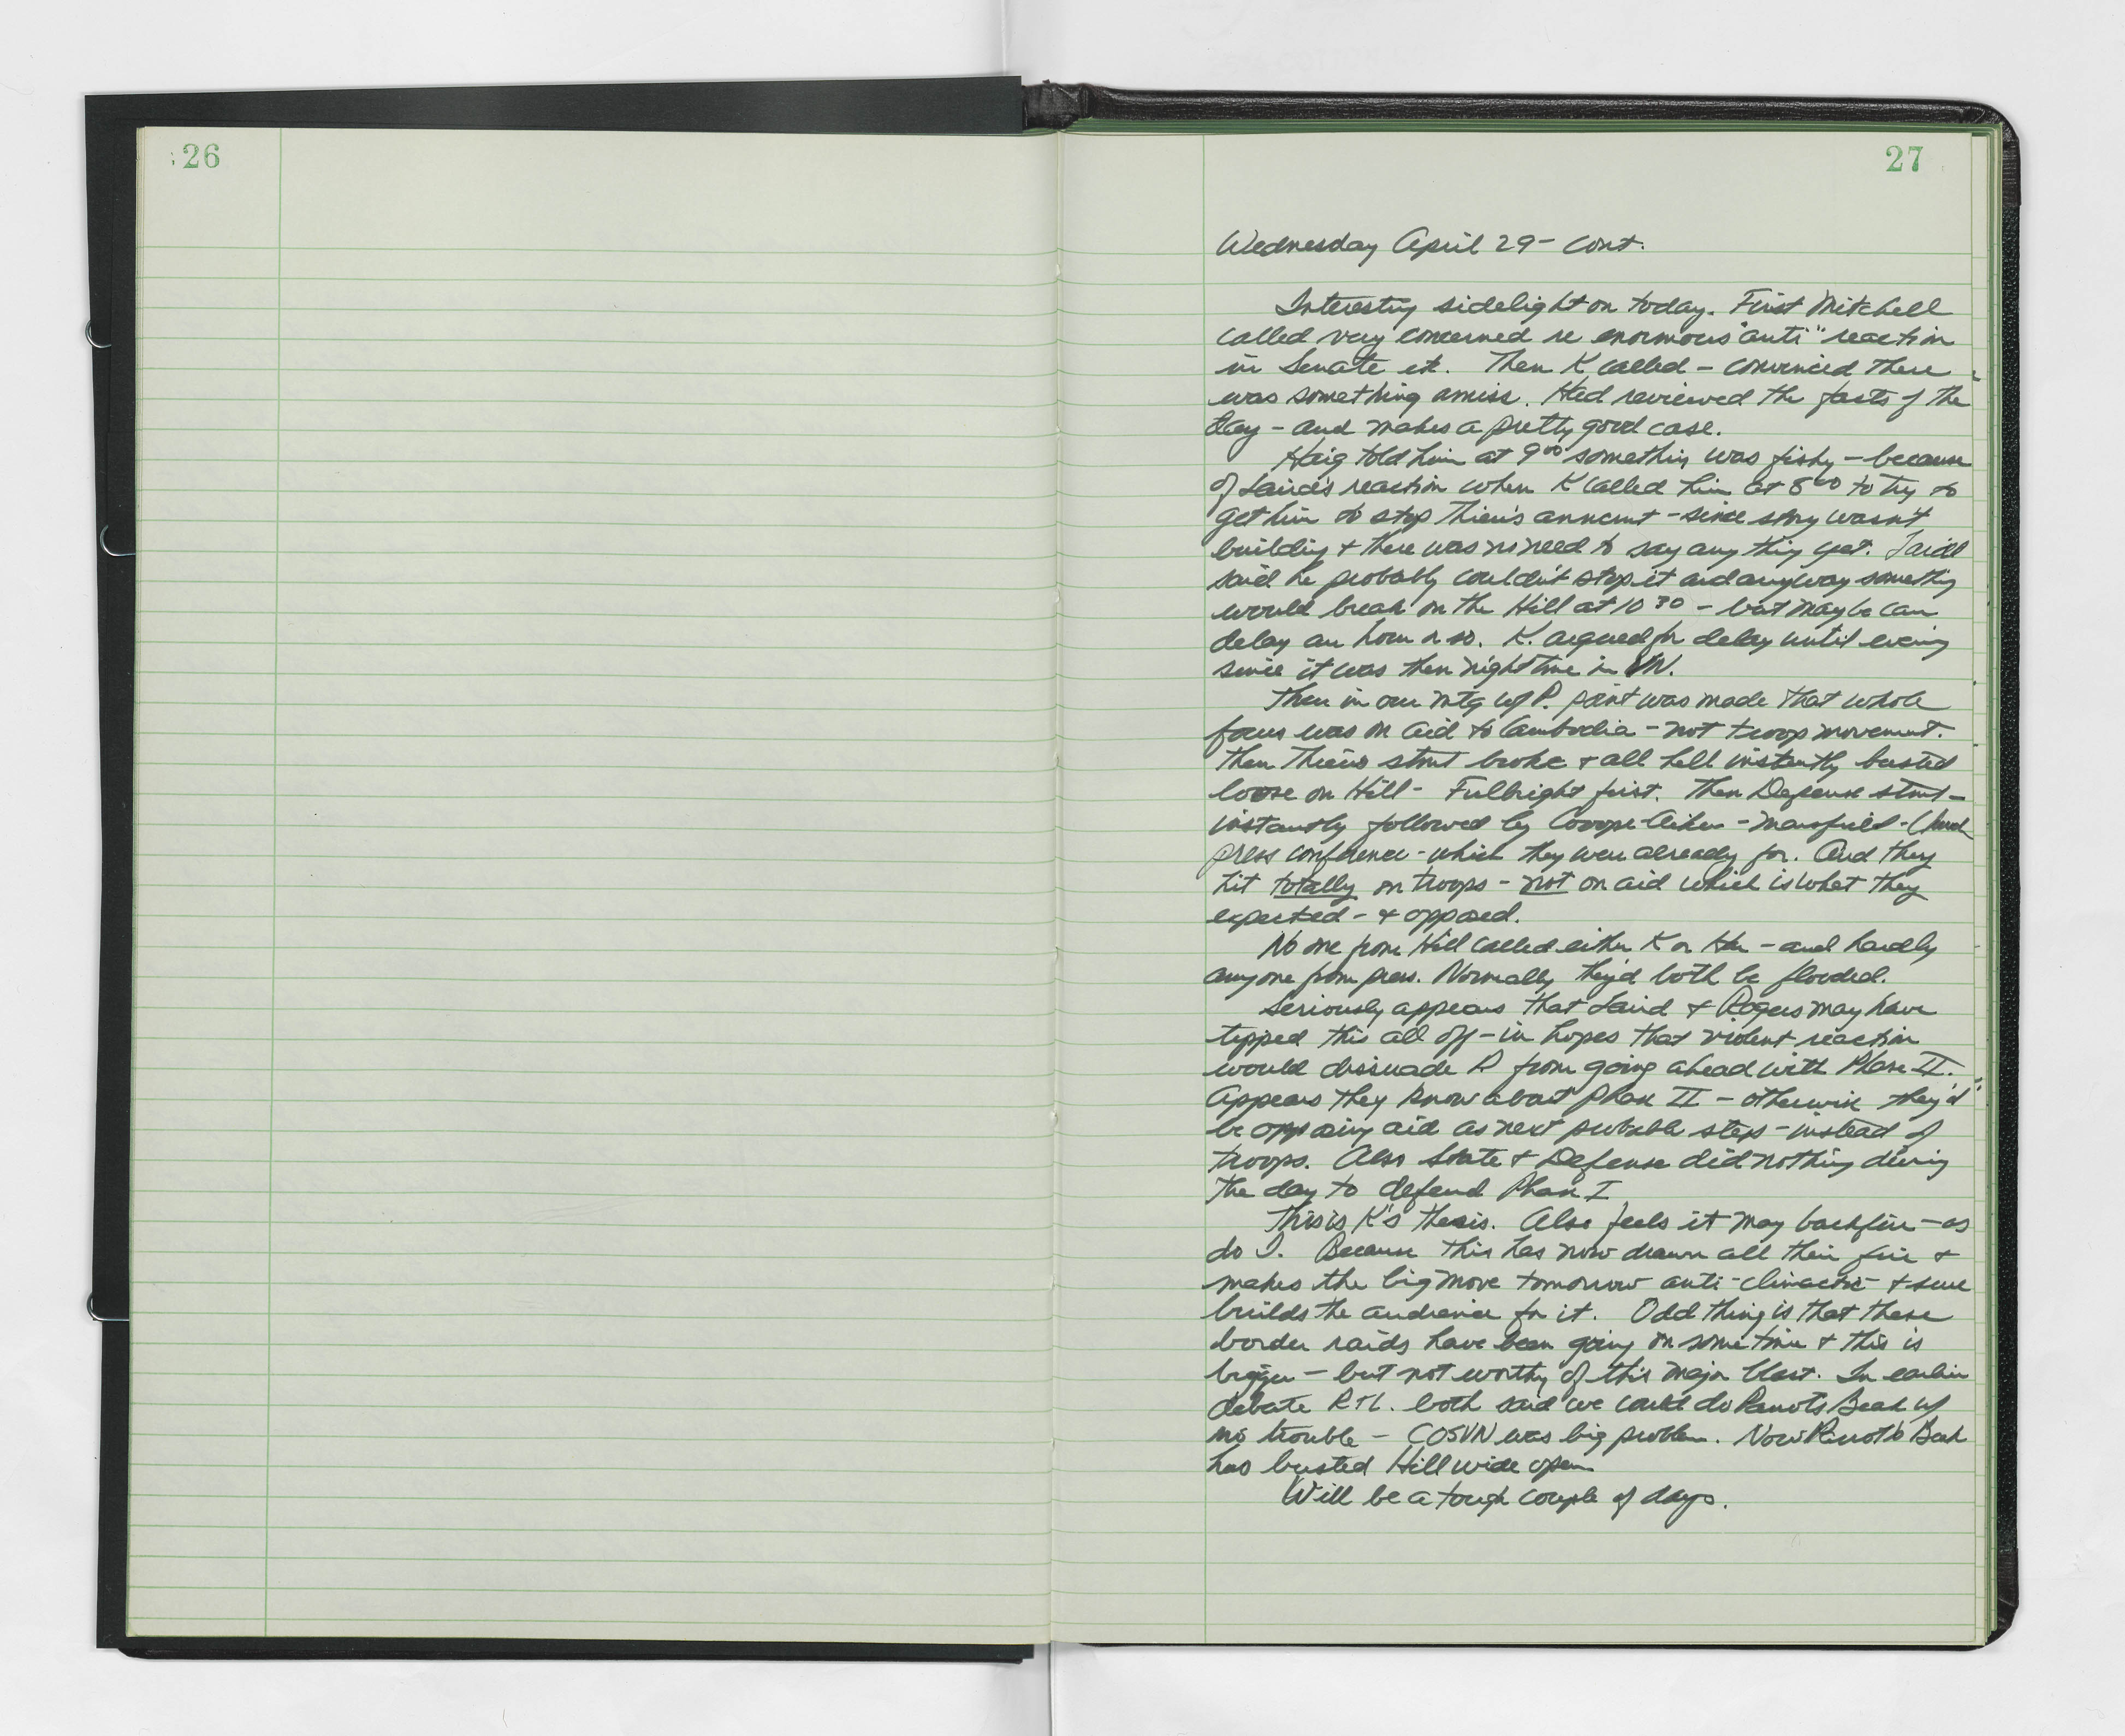 26
27
Wednesday April 29 - cont.
Interesting sidelight on today. First Mitchell
called very concerned re enormous "anti" reaction
in Senate etc. Then K called - convinced there
was something amiss. Had reviewed the facts of the
day - and makes a pretty good case.
Haig told him at 9⁰⁰ something was fishy - because
of Laird's reaction when K called him at 8⁰⁰ to try to
get him to stop Thieu's anncmt - since story wasn't
building & there was no need to say anything yet. Laird
said he probably couldn't stop it and anyway something
would break on the Hill at 10³⁰ - but maybe can
delay an hour or so. K. argued for delay until evening
since it was then nighttime in VN.
Then in our mtg w/ P. point was made that whole
focus was on aid to Cambodia - not troop movement.
Then Thieu's stmt broke & all hell instantly busted
loose on Hill - Fulbright first. Then Defense stmt -
instantly followed by Cooper-Aiken - Mansfield -
press conference - which they were already for. And they
hit totally on troops - not on aid which is what they
expected - & opposed.
No one from Hill called either K or - and hardly
anyone from press. Normally they'd both be flooded.
Seriously appears that Laird & Rogers may have
tipped this all off - in hopes that violent reaction
would dissuade P from going ahead with Phase II.
Appears they know about Phase II - otherwise they'd
be opposing aid as next probable step - instead of
troops. Also State & Defense did nothing during
the day to defend Phase I
This is K's thesis. Also feels it may backfire - as
do I. Because this has now drawn all their fire &
makes the big move tomorrow anti-climactic - & sure
builds the audience for it. Odd thing is that these
border raids have been going on some time & this is
bigger - but not worthy of this major blast. In earlier
debate R & L. both said we could do Parrots Beak w/
no trouble - COSVN was big problem. Now Parrot's Beak
has busted Hill wide open
Will be a tough couple of days.